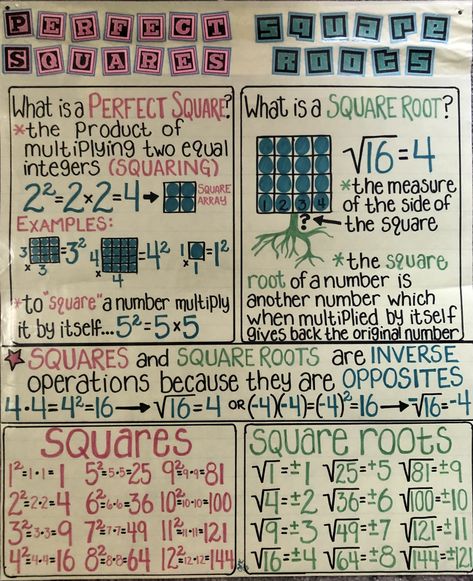 PERFECT SQUARES
SQUARE ROOTS
What is a PERFECT SQUARE?
*the product of
multiplying two equal
integers (SQUARING)
2²=2×2=4→
SQUARE
ARRAY
EXAMPLES:
3 × 3 =3²
4 × 4 =4²
1 × 1 =1²
*to "square" a number multiply
it by itself...5²=5×5
What is a SQUARE ROOT?
1 2 3 4
?
√16=4
*the measure
of the side of
the square
*the square
root of a number is
another number which
when multiplied by itself
gives back the original number
★SQUARES and SQUARE ROOTS are INVERSE
operations because they are OPPOSITES
4·4=4²=16→√16=4 OR (-4)(-4)=(-4)²=16→-√16=-4
SQUARES
1²=1·1=1 5²=5·5=25 9²=9·9=81
2²=2·2=4 6²=6·6=36 10²=10·10=100
3²=3·3=9 7²=7·7=49 11²=11·11=121
4²=4·4=16 8²=8·8=64 12²=12·12=144
square roots
√1=±1 √25=±5 √81=±9
√4=±2 √36=±6 √100=±10
√9=±3 √49=±7 √121=±11
√16=±4 √64=±8 √144=±12